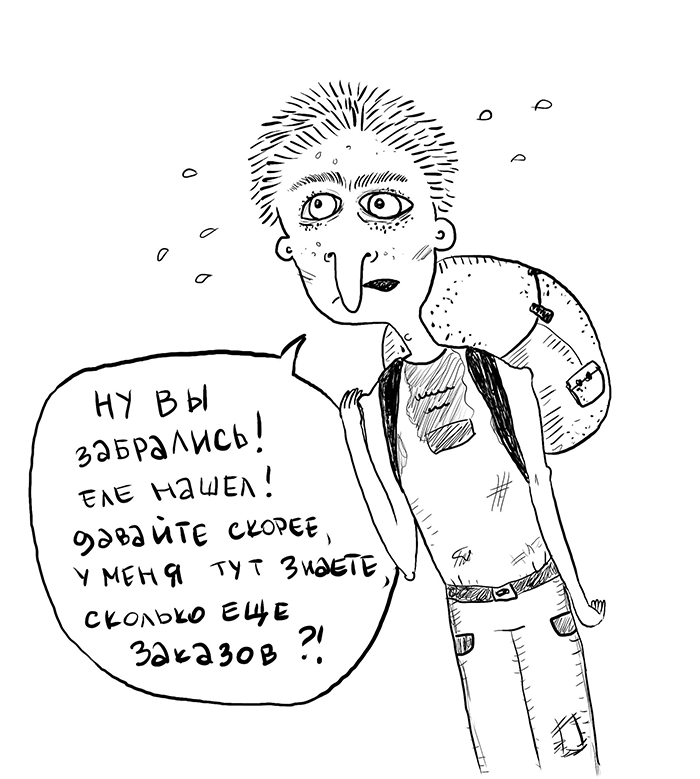 НУ ВЫ
ЗАБРАЛИСЬ!
ЕЛЕ НАШЕЛ!
ДАВАЙТЕ СКОРЕЕ,
У МЕНЯ ТУТ ЗНАЕТЕ,
СКОЛЬКО ЕЩЕ
ЗАКАЗОВ ?!